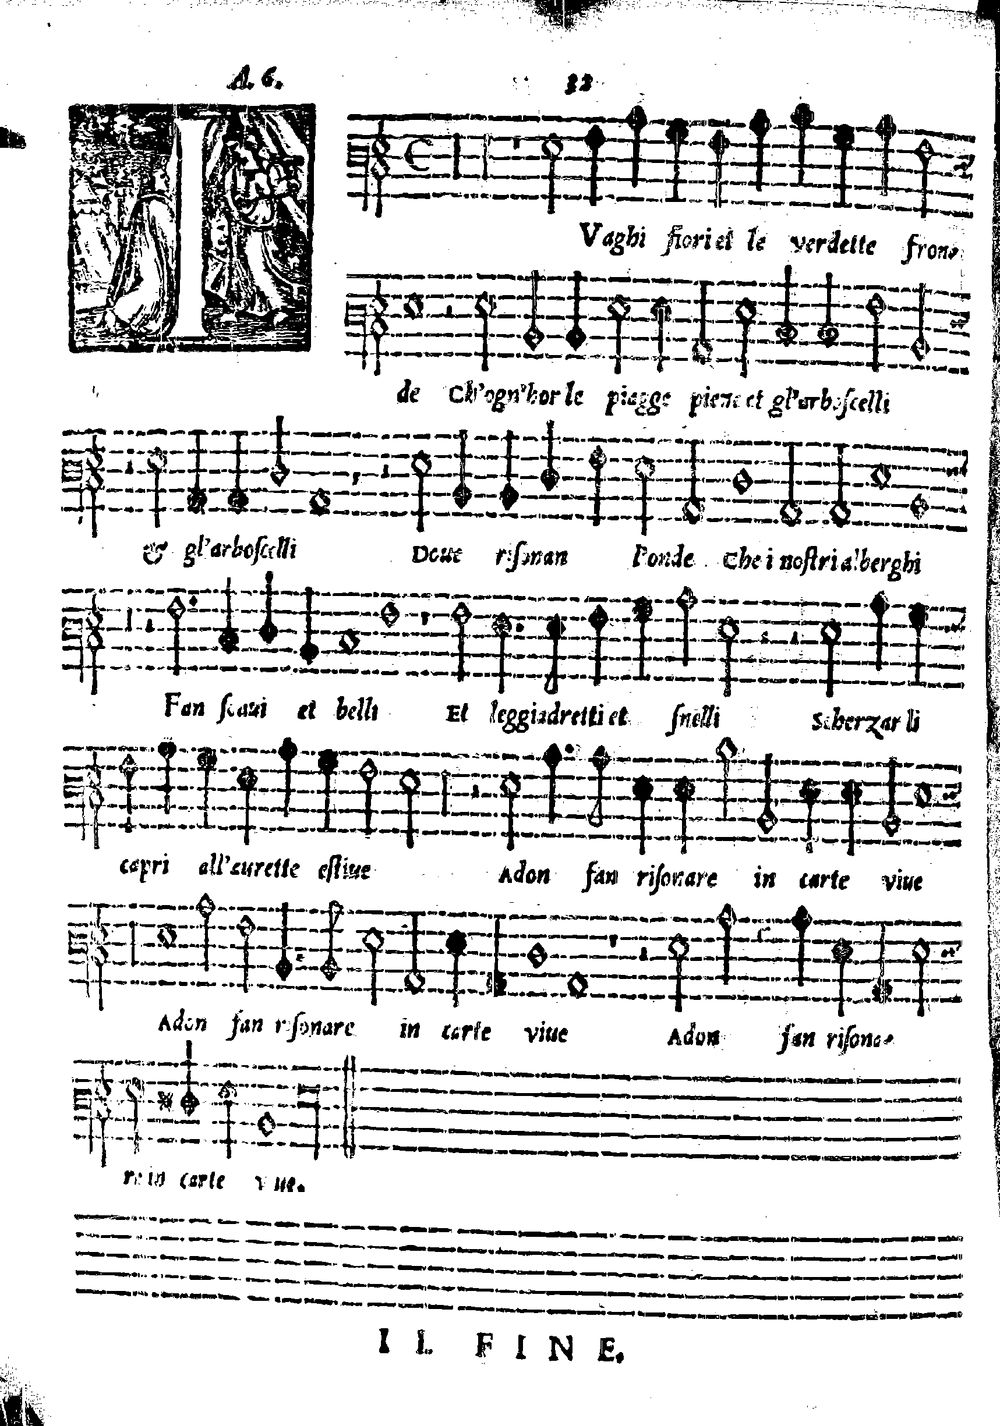 A. 6. 32
I
Vaghi fiori et le verdette fron-
de Ch'ogn'hor le piagge piene et gl'arboscelli
& gl'arboscelli Doue risonan l'onde Che i nostri alberghi
Fan soaui et belli Et leggiadretti et snelli Scherzar li
capri all'aurette estiue Adon fan risonare in carte viue
Adon fan risonare in carte viue Adon fan risona-
re in carte viue.
IL FINE.